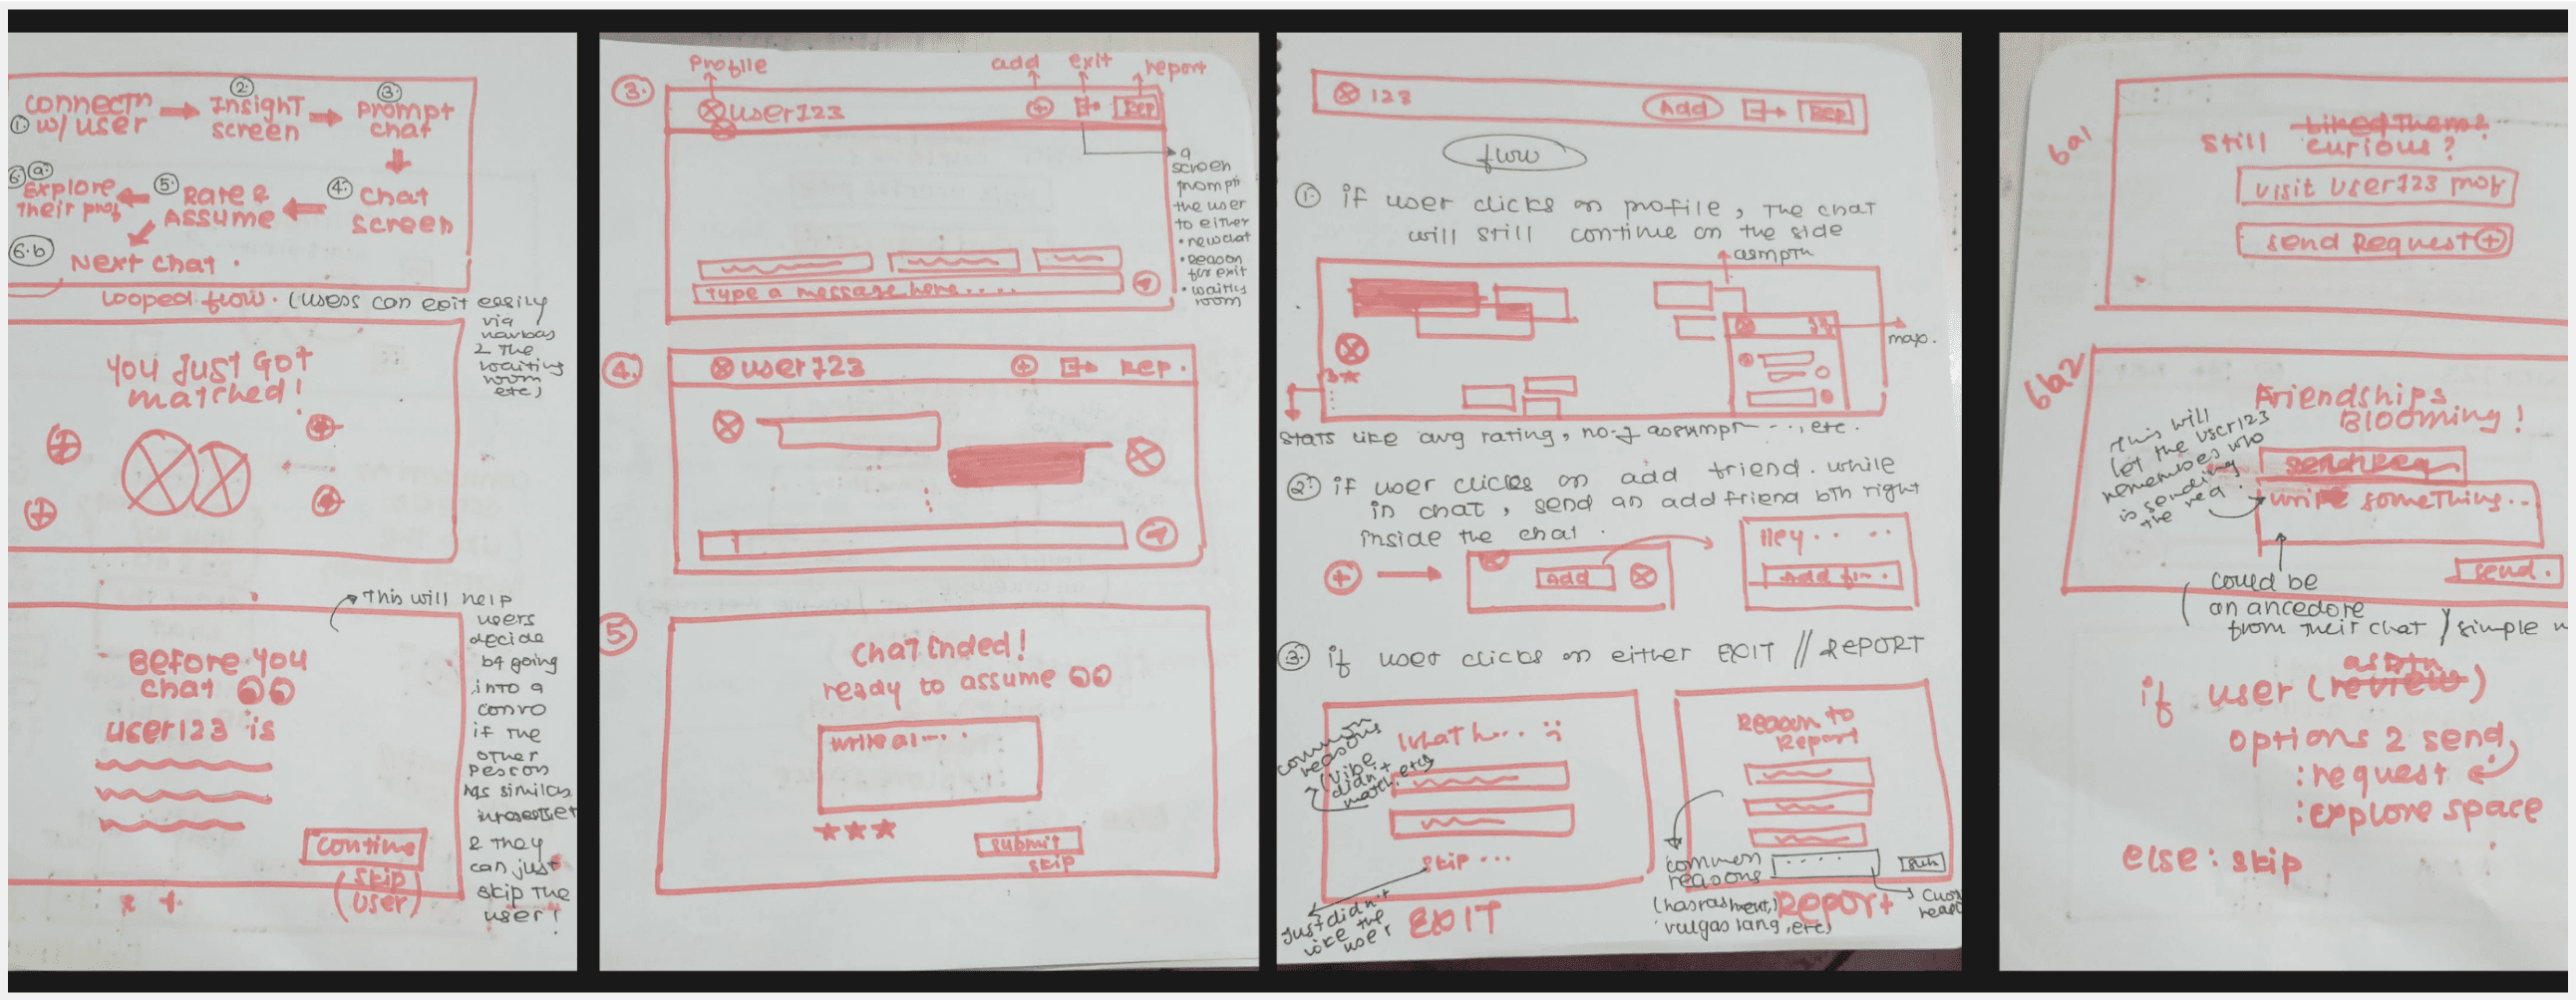 connectn
① w/ user
②
Insight
screen
③
Prompt
chat
④ chat
screen
⑤ Rate &
Assume
6. a.
Explore
their prof
6.b
Next chat.
Looped flow. (users can exit easily
via
navbar
2 the
waiting
room
etc)
You just Got
matched!
This will help
users
decide
b4 going
into a
convo
if the
other
person
has similar
2 they
can just
skip the
user!
Before you
chat
user123 is
continue
(skip
user)
3.
Profile
add
exit
report
user123
Rep
Type a message here.....
a
screen
prompt
the user
to either
• new chat
• reason
for exit
• waiting
room
4.
user123
Rep.
5
Chat Ended!
ready to assume
write a....
submit
skip
123
Add
Rep
flow
① if user clicks on profile, the chat
will still continue on the side
asmptn
3★
map.
stats like avg rating, no. of assumpt....., etc.
② if user clicks on add friend. while
in chat, send an add friend btn right
inside the chat.
Add
Hey.. ..
Add fr...
③ if user clicks on either EXIT // REPORT
common
reasons
(vibe
didn't
match, etc)
what h... :(
skip ...
just didn't
like the
user
EXIT
Reason to
Report
....
Sub
common
reasons
(harashment,
vulgar lang, etc)
REPORT
6a1
Still Liked Them?
curious?
visit user123 prof.
send Request +
6a2
Friendships
Blooming!
This will
let the user123
remember who
is sending
the req.
send req
write something...
send.
could be
an ancedore
from their chat / simple
if user (review)
asptn
options 2 send
: request
: explore space
else: skip